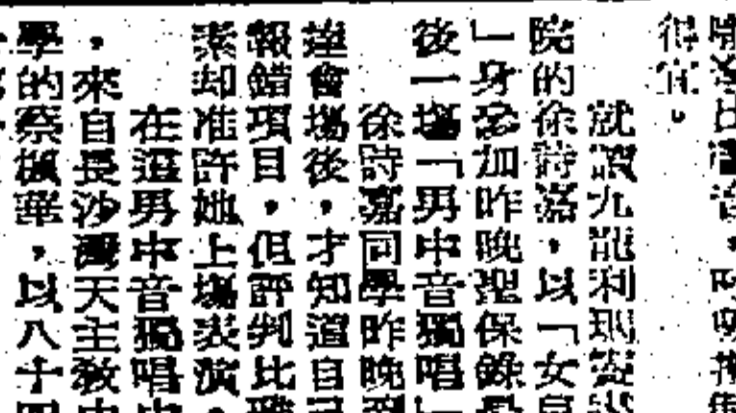 得宜。
就讀九龍利瑪竇
院的徐詩嘉，以「女
」身參加昨晚聖保錄
後一場「男中音獨唱」
徐詩嘉同學昨晚到
達會場後，才知道自己
報錯項目，但評判比
素却准許她上場表演。
在這男中音獨唱中
，來自長沙灣天主教中
學的蔡振華，以八十四